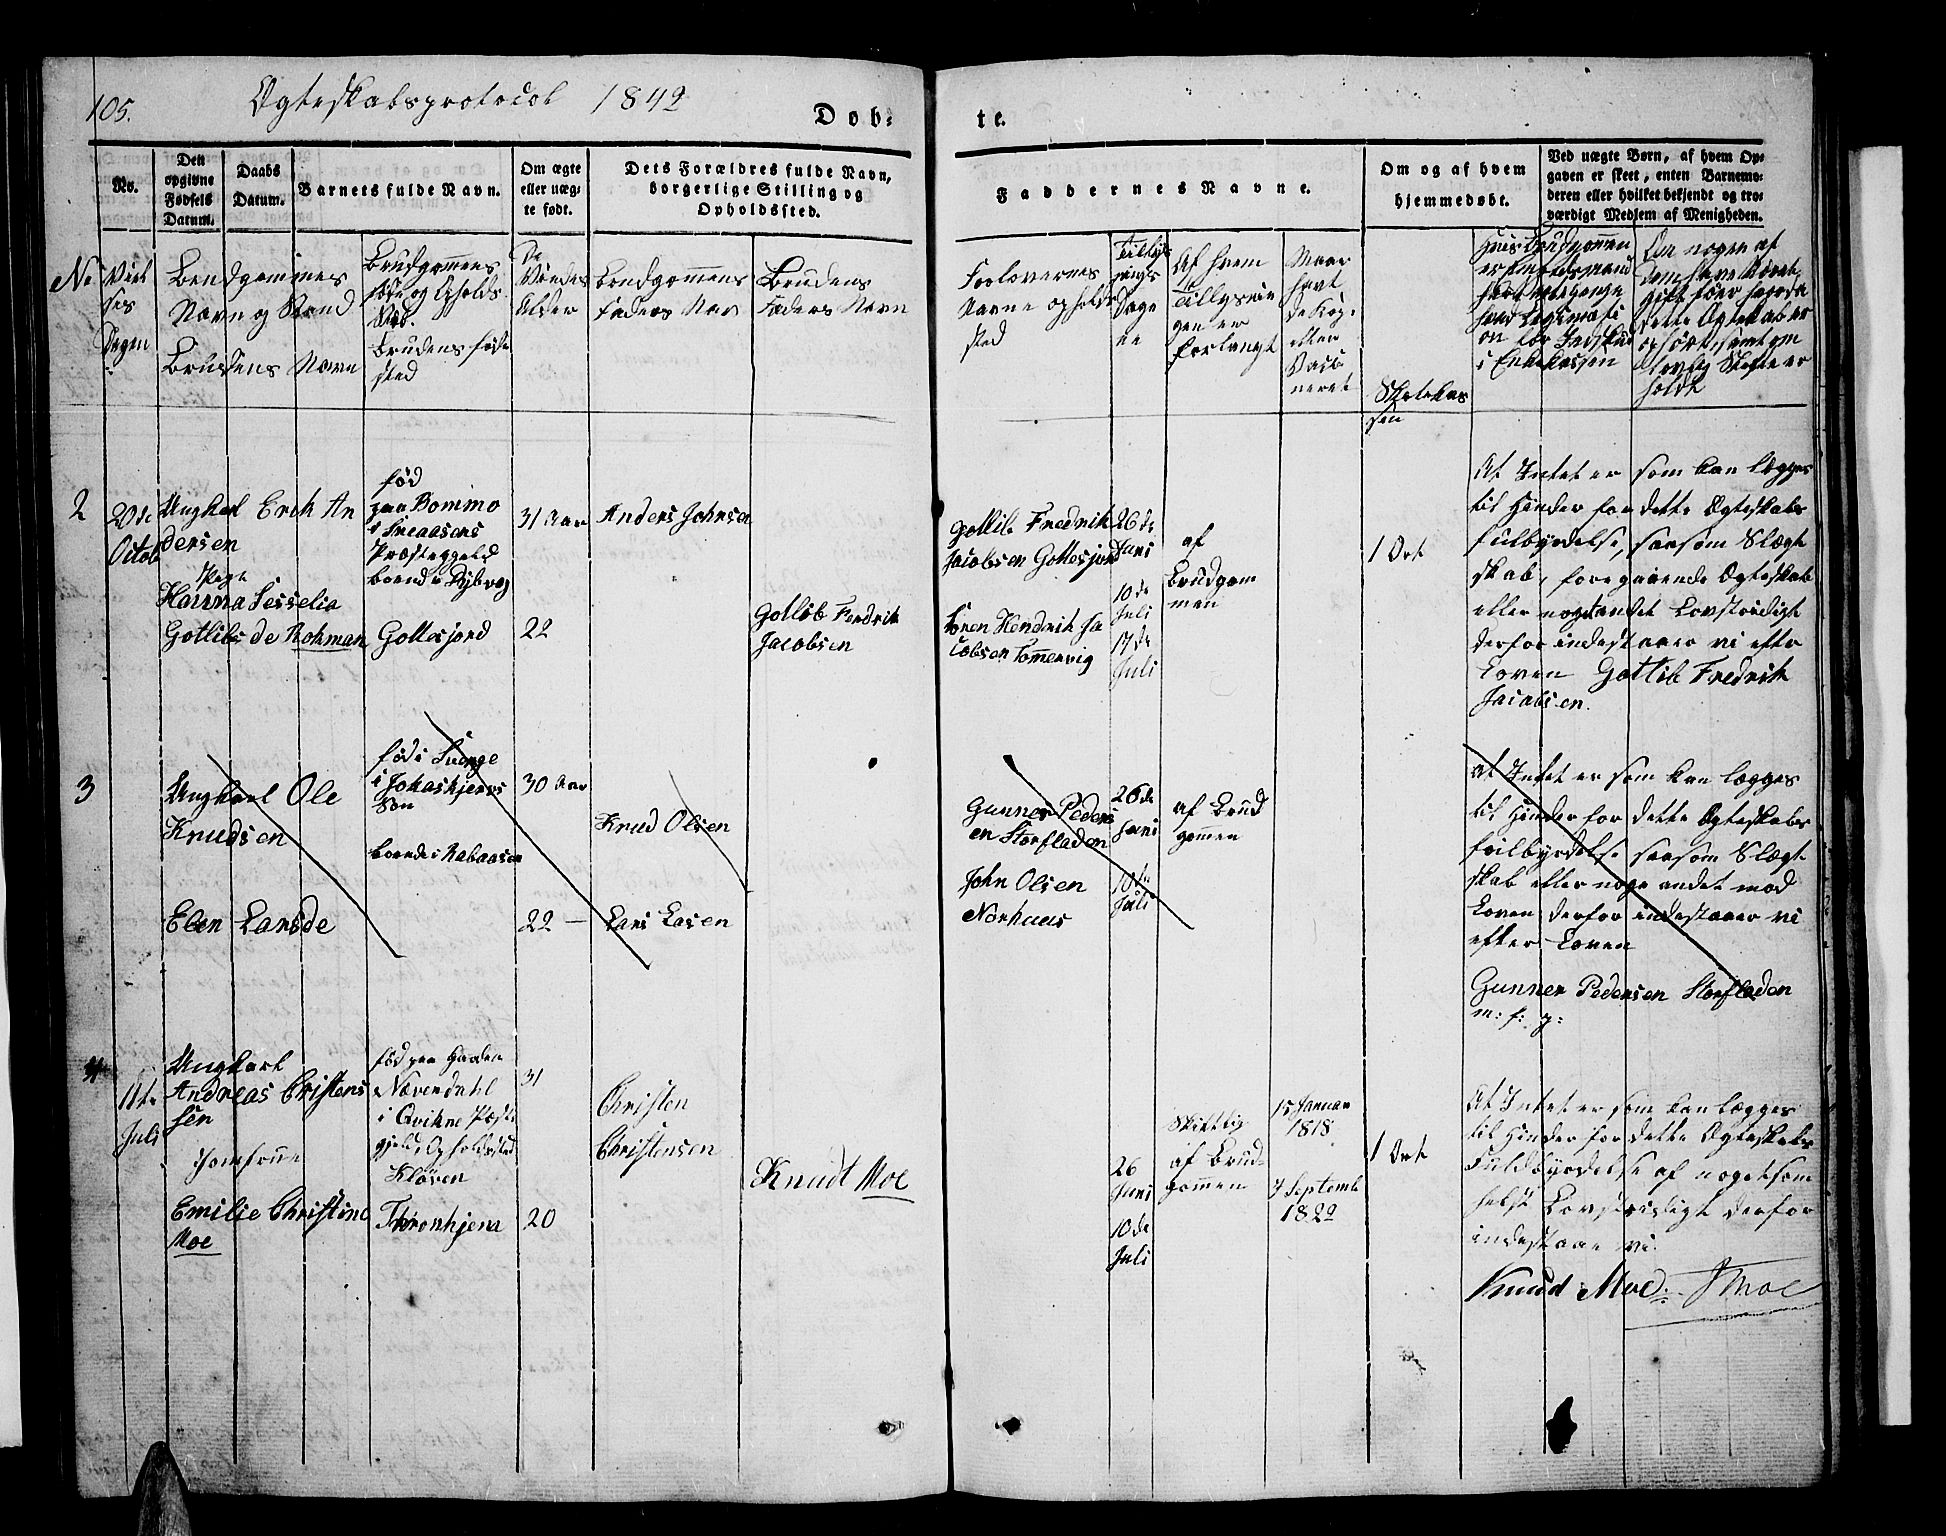 105.
Ægteskabsprotocol 1842
Døb:
te.
No.
Den
opgivne
Fødsels
Datum.
Daabs
Datum.
Barnets fulde Navn.
Om ægte
eller uæg-
te født.
Dets Forældres fulde Navn,
borgerlige Stilling og
Opholdssted.
Faddernes Navne.
Om og af hvem
hjemmedøbt.
Ved uægte Børn, af hvem Op-
gaven er skeet, enten Barnemo-
deren eller hvilket bekjendt og tro-
værdigt Medlem af Menigheden.
No
Viel
ses
Dagen
Brudgommens
Navn og Stand
Brudens Navn
Brudgommens
føde og Opholds
Sted.
Brudens føde
sted
De
Viedes
Alder
Brudgommens
Faders Nav
Brudens
Faders Navn
Forlovernes
Navne opholds
sted
Tillys
nings
Dage
ne
Af hvem
Tillysnin
gen er
forlangt
Naar
havt
de Kop
eller
Vacci
neret
Skolekas
sen
Hvis Brudgommen
er
i Enkekassen
Om nogen af
dem have været
gift før
dette Ægteskab er
holdt
2
20de
Octob
Ungkarl Erik An
dersen
Pige
Hanna Sesselia
Gotlibs de Rohman
fød
paa Bommo
i Snaasens
Præstegjeld
boende Dybvog
Gottesjord
31 Aar
22
Anders Johnsen
Gotlib Fredrik
Jacobsen
Gotlib Fredrik
Jacobsen Gottesjord
Sören Hendrik Ja
cobsen Tommervig
26de
Juni
10de
Juli
17de
Juli
af
Brudgom
men
1 Ort
At Intet er som kan lægges
til Hinder for dette Ægteskabs
fulbyrdelse, saasom Slægt
skab, foregaaende Ægteskab
eller noget andet Lovstridigt
derfor indestaaer vi efter
Loven Gotlib Fredrik
Jacobsen.
3
Ungkarl Ole
Knudsen
Elen Larsde
fød i Sverge
i
Søn
boende i Rabaasen
30 Aar
22 —
Knud Olsen
Lars Lasen
Gunner Peders
en Storfladen
John Olsen
Norhuus
26de
Juni
10de
Juli
af Brud
gommen
at Intet er som kan lægges
til Hinder for dette Ægteskabs
fulbyrdelse saasom Slægt
skab eller noge andet mod
Loven derfor indestaaer vi
efter Loven
Gunner Pedersen Storfladen
m: f: p:
4
11te
Juli
Ungkarl
Andreas Christens
sen
Jomfrue
Emilie Christine
Moe
fød paa Gaarden
Nævendahl
i Qvikne Præste
gjeld, Opholdssted
Kløven
Thronhjem
31
20
Christen
Christensen
Knudt Moe
26
Juni
10de
Juli
Skriftlig
af Brud-
gommen
15 Januar
1818
7 Septemb
1822
1 Ort
At Intet er som kan lægges
til Hinder for dette Ægteskabs
Fuldbyrdelse af noget som
helst Lovstridigt derfor
indestaae vi
Knud Moe. Moe